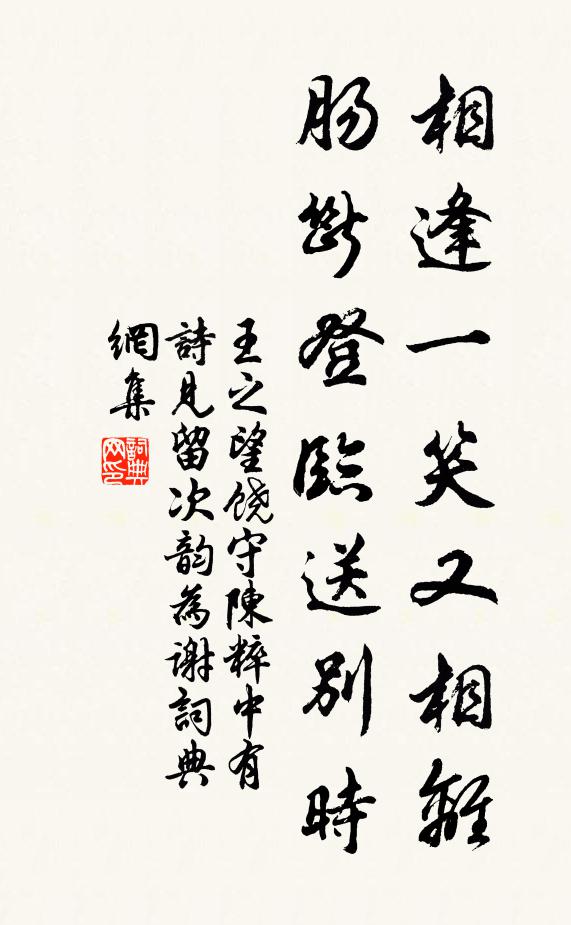 相逢一笑又相離
腸斷登臨送別時
王之望饒守陳粹中有
詩見留次韵為謝詞典
網集
詞典
网印